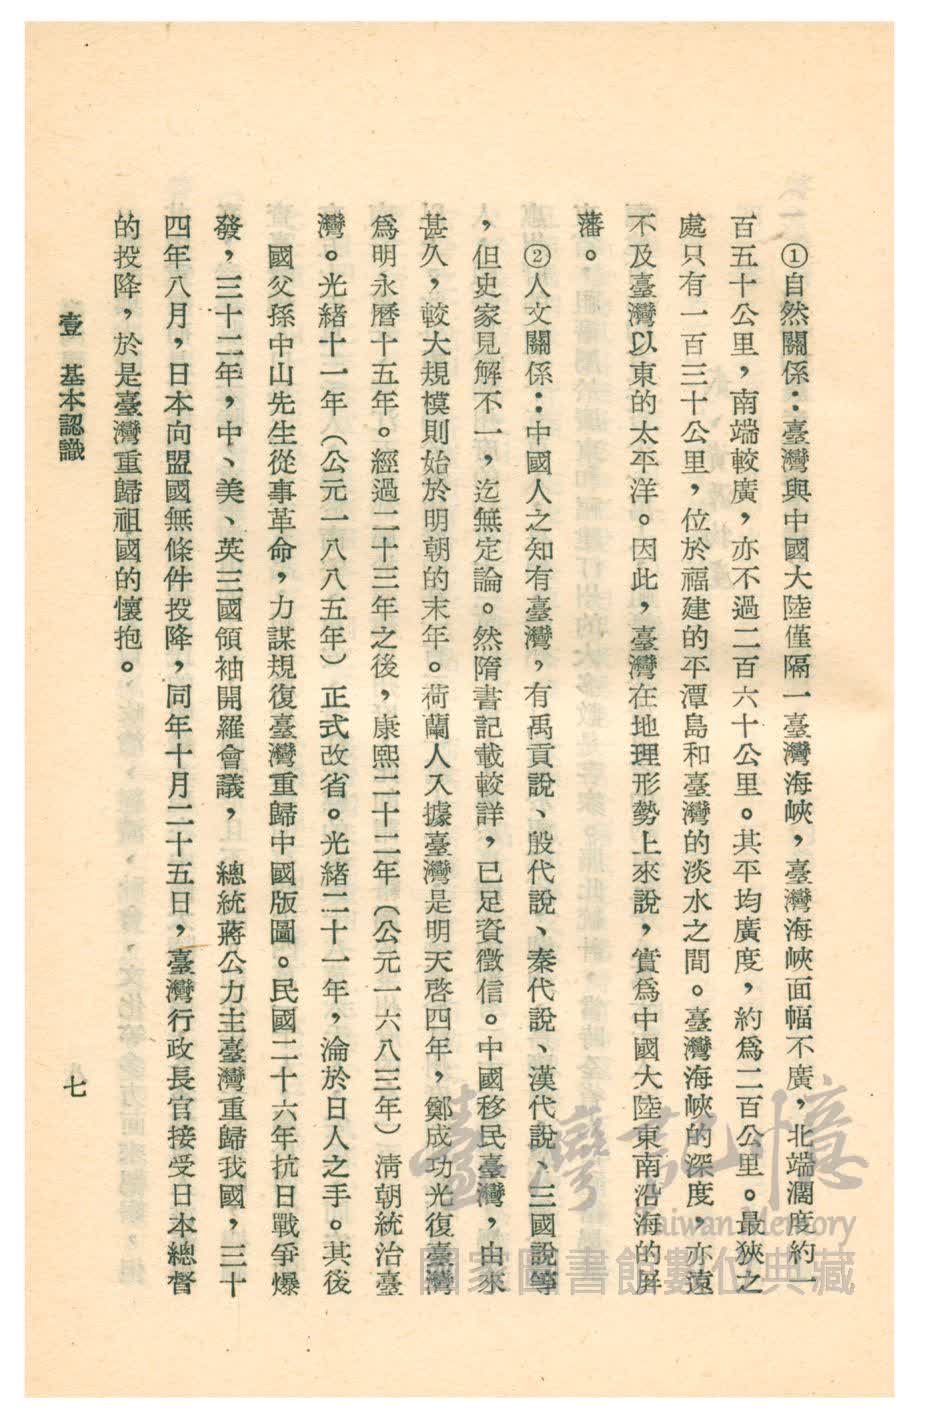 ①自然關係：臺灣與中國大陸僅隔一臺灣海峽，臺灣海峽面幅不廣，北端濶度約一
百五十公里，南端較廣，亦不過二百六十公里。其平均廣度，約爲二百公里。最狹之
處只有一百三十公里，位於福建的平潭島和臺灣的淡水之間。臺灣海峽的深度，亦遠
不及臺灣以東的太平洋。因此，臺灣在地理形勢上來說，實爲中國大陸東南沿海的屏
藩。
②人文關係：中國人之知有臺灣，有禹貢說、殷代說、秦代說、漢代說、三國說等
，但史家見解不一，迄無定論。然隋書記載較詳，已足資徵信。中國移民臺灣，由來
甚久，較大規模則始於明朝的末年。荷蘭人入據臺灣是明天啓四年，鄭成功光復臺灣
爲明永曆十五年。經過二十三年之後，康熙二十二年（公元一六八三年）淸朝統治臺
灣。光緒十一年（公元一八八五年）正式改省。光緒二十一年，淪於日人之手。其後
國父孫中山先生從事革命，力謀規復臺灣重歸中國版圖。民國二十六年抗日戰爭爆
發，三十二年，中、美、英三國領袖開羅會議，　總統蔣公力主臺灣重歸我國，三十
四年八月，日本向盟國無條件投降，同年十月二十五日，臺灣行政長官接受日本總督
的投降，於是臺灣重歸祖國的懷抱。
壹　基本認識
七
臺灣記憶
Taiwan Memory
國家圖書館數位典藏